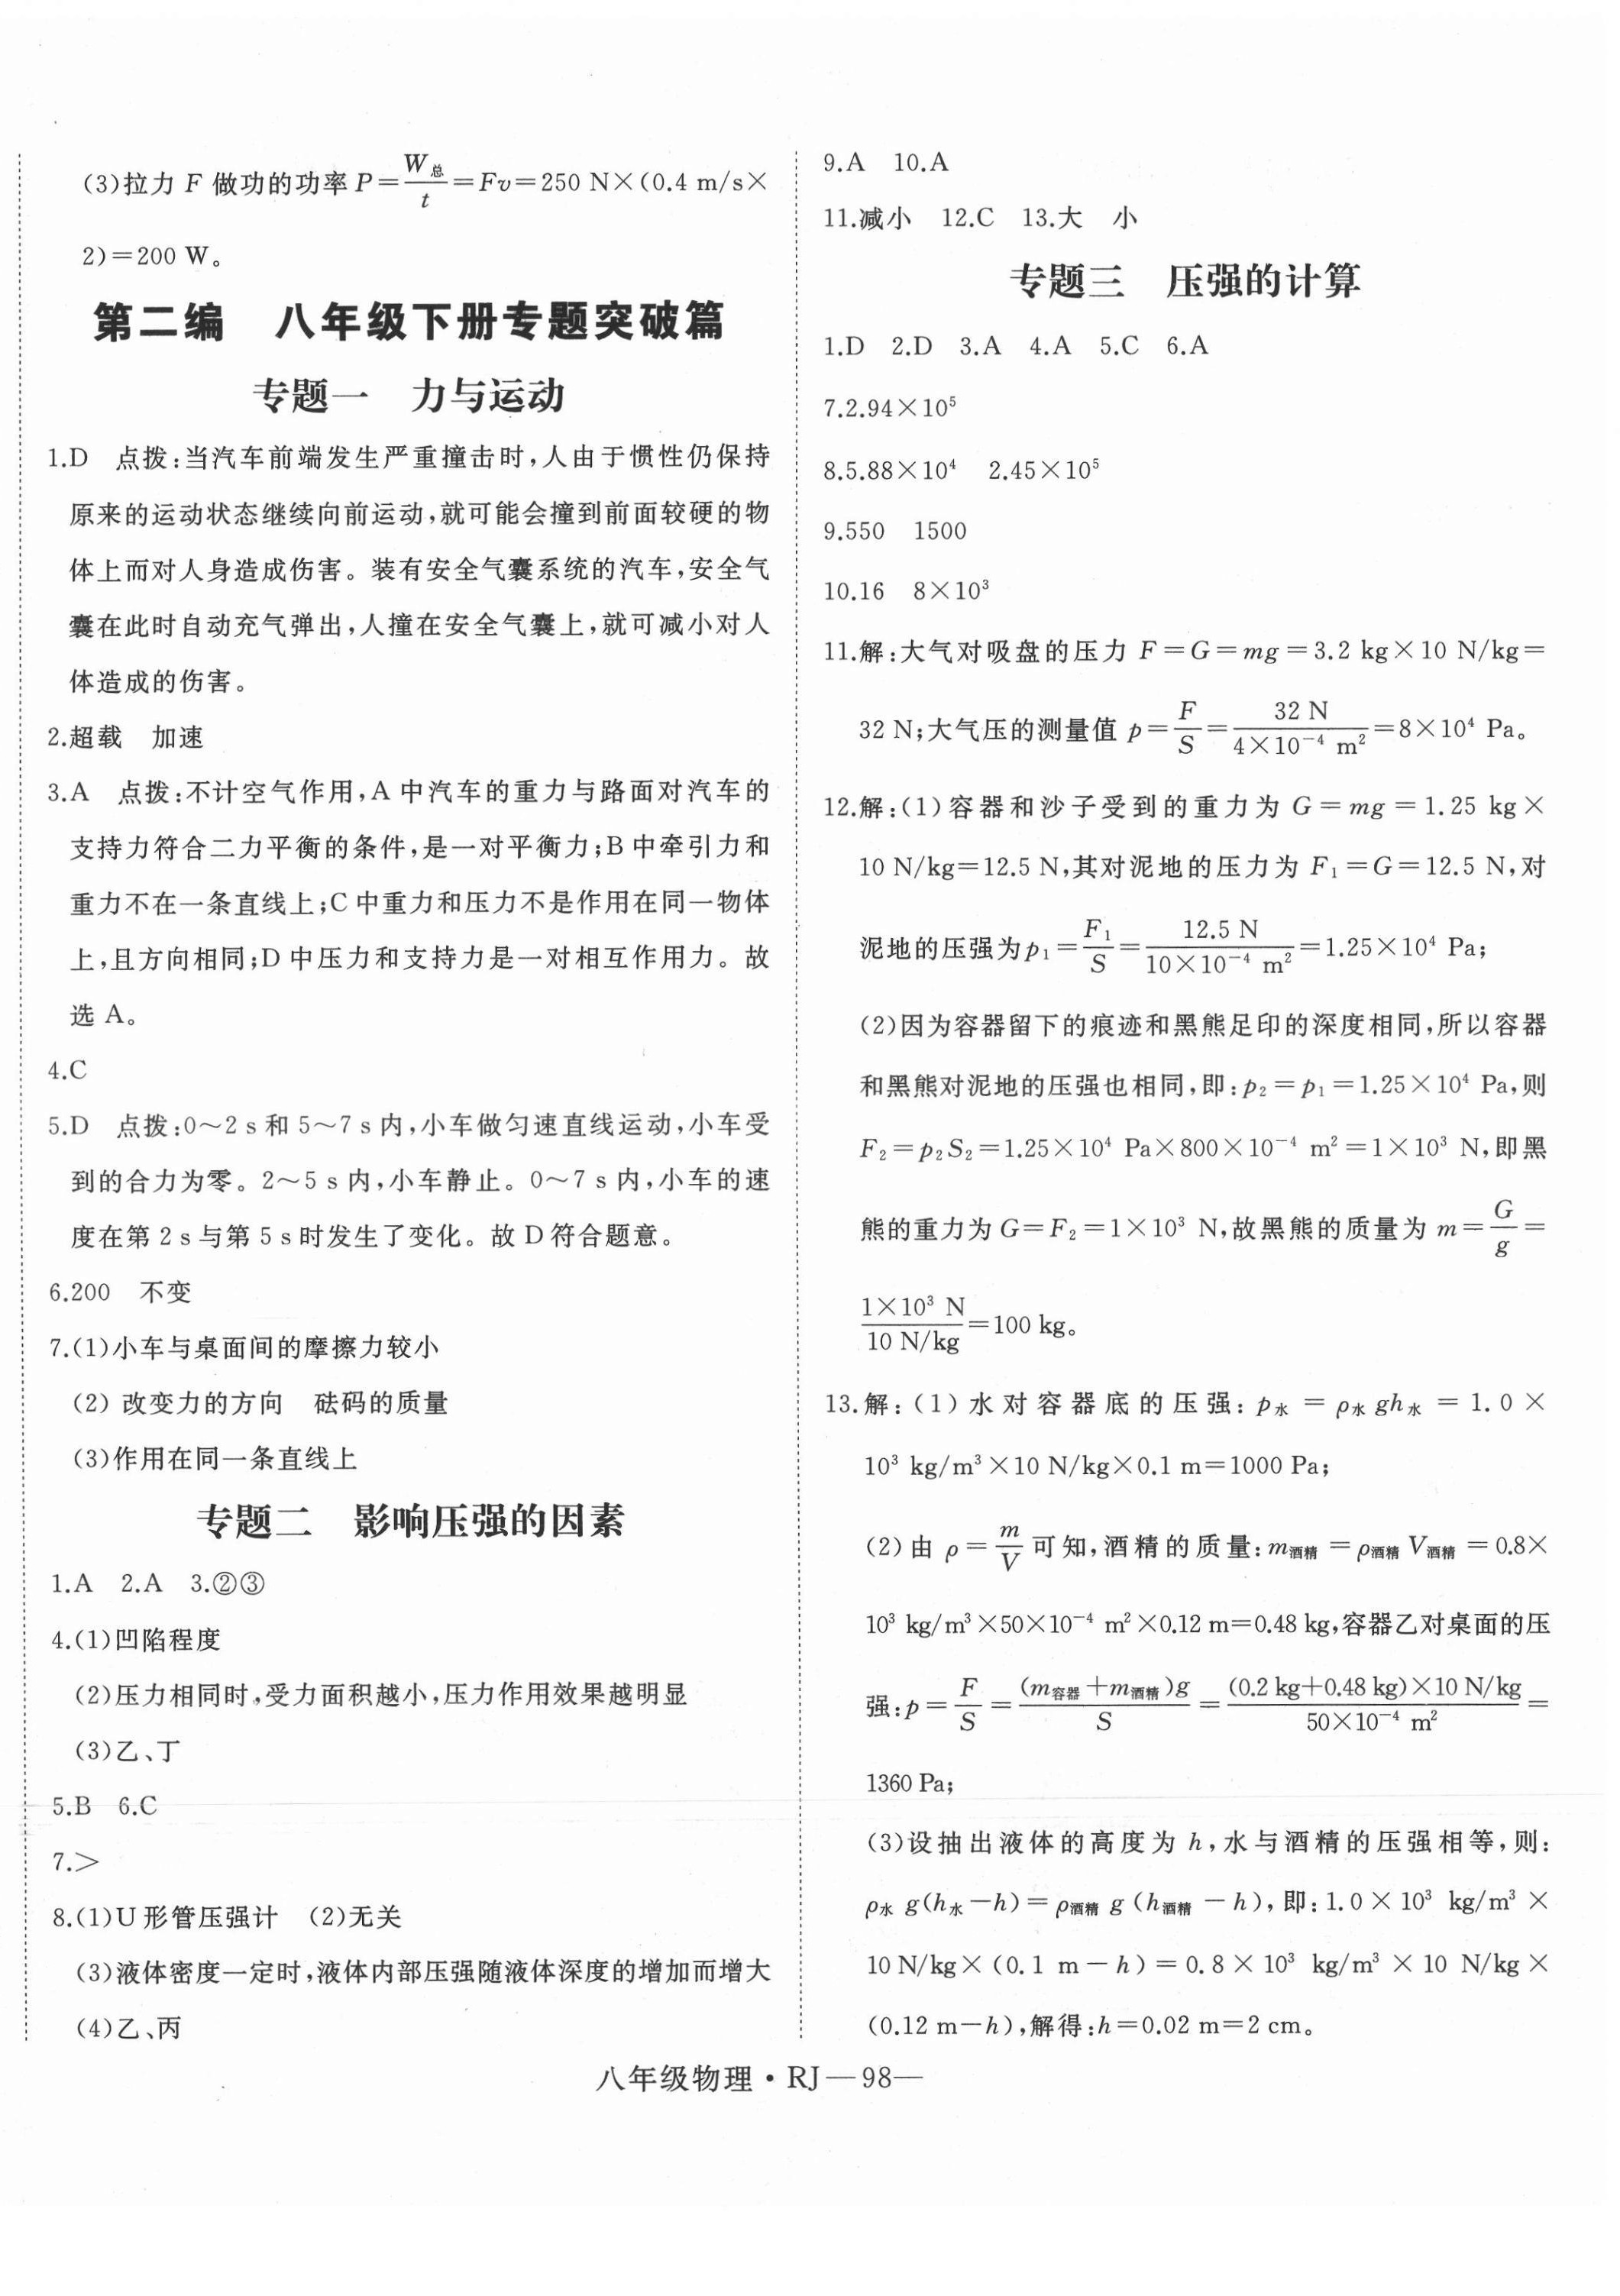 (3)拉力 F 做功的功率 P=W总/t=Fv=250 N×(0.4 m/s×
2)=200 W。
第二编 八年级下册专题突破篇
专题一 力与运动
1.D 点拨:当汽车前端发生严重撞击时,人由于惯性仍保持
原来的运动状态继续向前运动,就可能会撞到前面较硬的物
体上而对人身造成伤害。装有安全气囊系统的汽车,安全气
囊在此时自动充气弹出,人撞在安全气囊上,就可减小对人
体造成的伤害。
2.超载 加速
3.A 点拨:不计空气作用,A 中汽车的重力与路面对汽车的
支持力符合二力平衡的条件,是一对平衡力;B 中牵引力和
重力不在一条直线上;C 中重力和压力不是作用在同一物体
上,且方向相同;D 中压力和支持力是一对相互作用力。故
选 A。
4.C
5.D 点拨:0～2 s 和 5～7 s 内,小车做匀速直线运动,小车受
到的合力为零。2～5 s 内,小车静止。0～7 s 内,小车的速
度在第 2 s 与第 5 s 时发生了变化。故 D 符合题意。
6.200 不变
7.(1)小车与桌面间的摩擦力较小
(2) 改变力的方向 砝码的质量
(3)作用在同一条直线上
专题二 影响压强的因素
1.A 2.A 3.②③
4.(1)凹陷程度
(2)压力相同时,受力面积越小,压力作用效果越明显
(3)乙、丁
5.B 6.C
7.>
8.(1)U 形管压强计 (2)无关
(3)液体密度一定时,液体内部压强随液体深度的增加而增大
(4)乙、丙
9.A 10.A
11.减小 12.C 13.大 小
专题三 压强的计算
1.D 2.D 3.A 4.A 5.C 6.A
7.2.94×10⁵
8.5.88×10⁴ 2.45×10⁵
9.550 1500
10.16 8×10³
11.解:大气对吸盘的压力 F=G=mg=3.2 kg×10 N/kg=
32 N;大气压的测量值 p=F/S=32 N/(4×10⁻⁴ m²)=8×10⁴ Pa。
12.解:(1)容器和沙子受到的重力为 G=mg=1.25 kg×
10 N/kg=12.5 N,其对泥地的压力为 F₁=G=12.5 N,对
泥地的压强为p₁=F₁/S=12.5 N/(10×10⁻⁴ m²)=1.25×10⁴ Pa;
(2)因为容器留下的痕迹和黑熊足印的深度相同,所以容器
和黑熊对泥地的压强也相同,即:p₂=p₁=1.25×10⁴ Pa,则
F₂=p₂S₂=1.25×10⁴ Pa×800×10⁻⁴ m²=1×10³ N,即黑
熊的重力为 G=F₂=1×10³ N,故黑熊的质量为 m=G/g=
1×10³ N/10 N/kg=100 kg。
13.解:(1)水对容器底的压强:p水=ρ水gh水=1.0×
10³ kg/m³×10 N/kg×0.1 m=1000 Pa;
(2)由 ρ=m/V 可知,酒精的质量:m酒精=ρ酒精V酒精=0.8×
10³ kg/m³×50×10⁻⁴ m²×0.12 m=0.48 kg,容器乙对桌面的压
强:p=F/S=(m容器+m酒精)g/S=(0.2 kg+0.48 kg)×10 N/kg/(50×10⁻⁴ m²)=
1360 Pa;
(3)设抽出液体的高度为 h,水与酒精的压强相等,则:
ρ水g(h水-h)=ρ酒精g(h酒精-h),即:1.0×10³ kg/m³×
10 N/kg×(0.1 m-h)=0.8×10³ kg/m³×10 N/kg×
(0.12 m-h),解得:h=0.02 m=2 cm。
八年级物理·RJ—98—